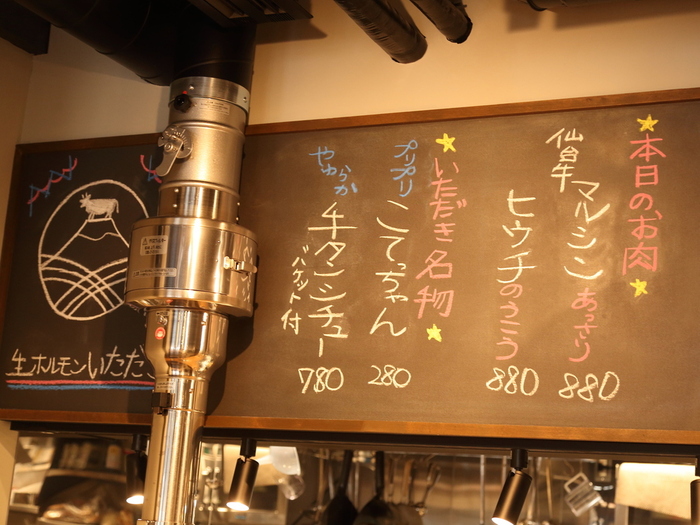 本日のお肉
仙台牛
マルシン あっさり
880
ヒウチのうこう
880
いただき名物
プリプリ
こてっちゃん
280
やわらか
牛タンシチュー
バゲット付
780
生ホルモンいただき